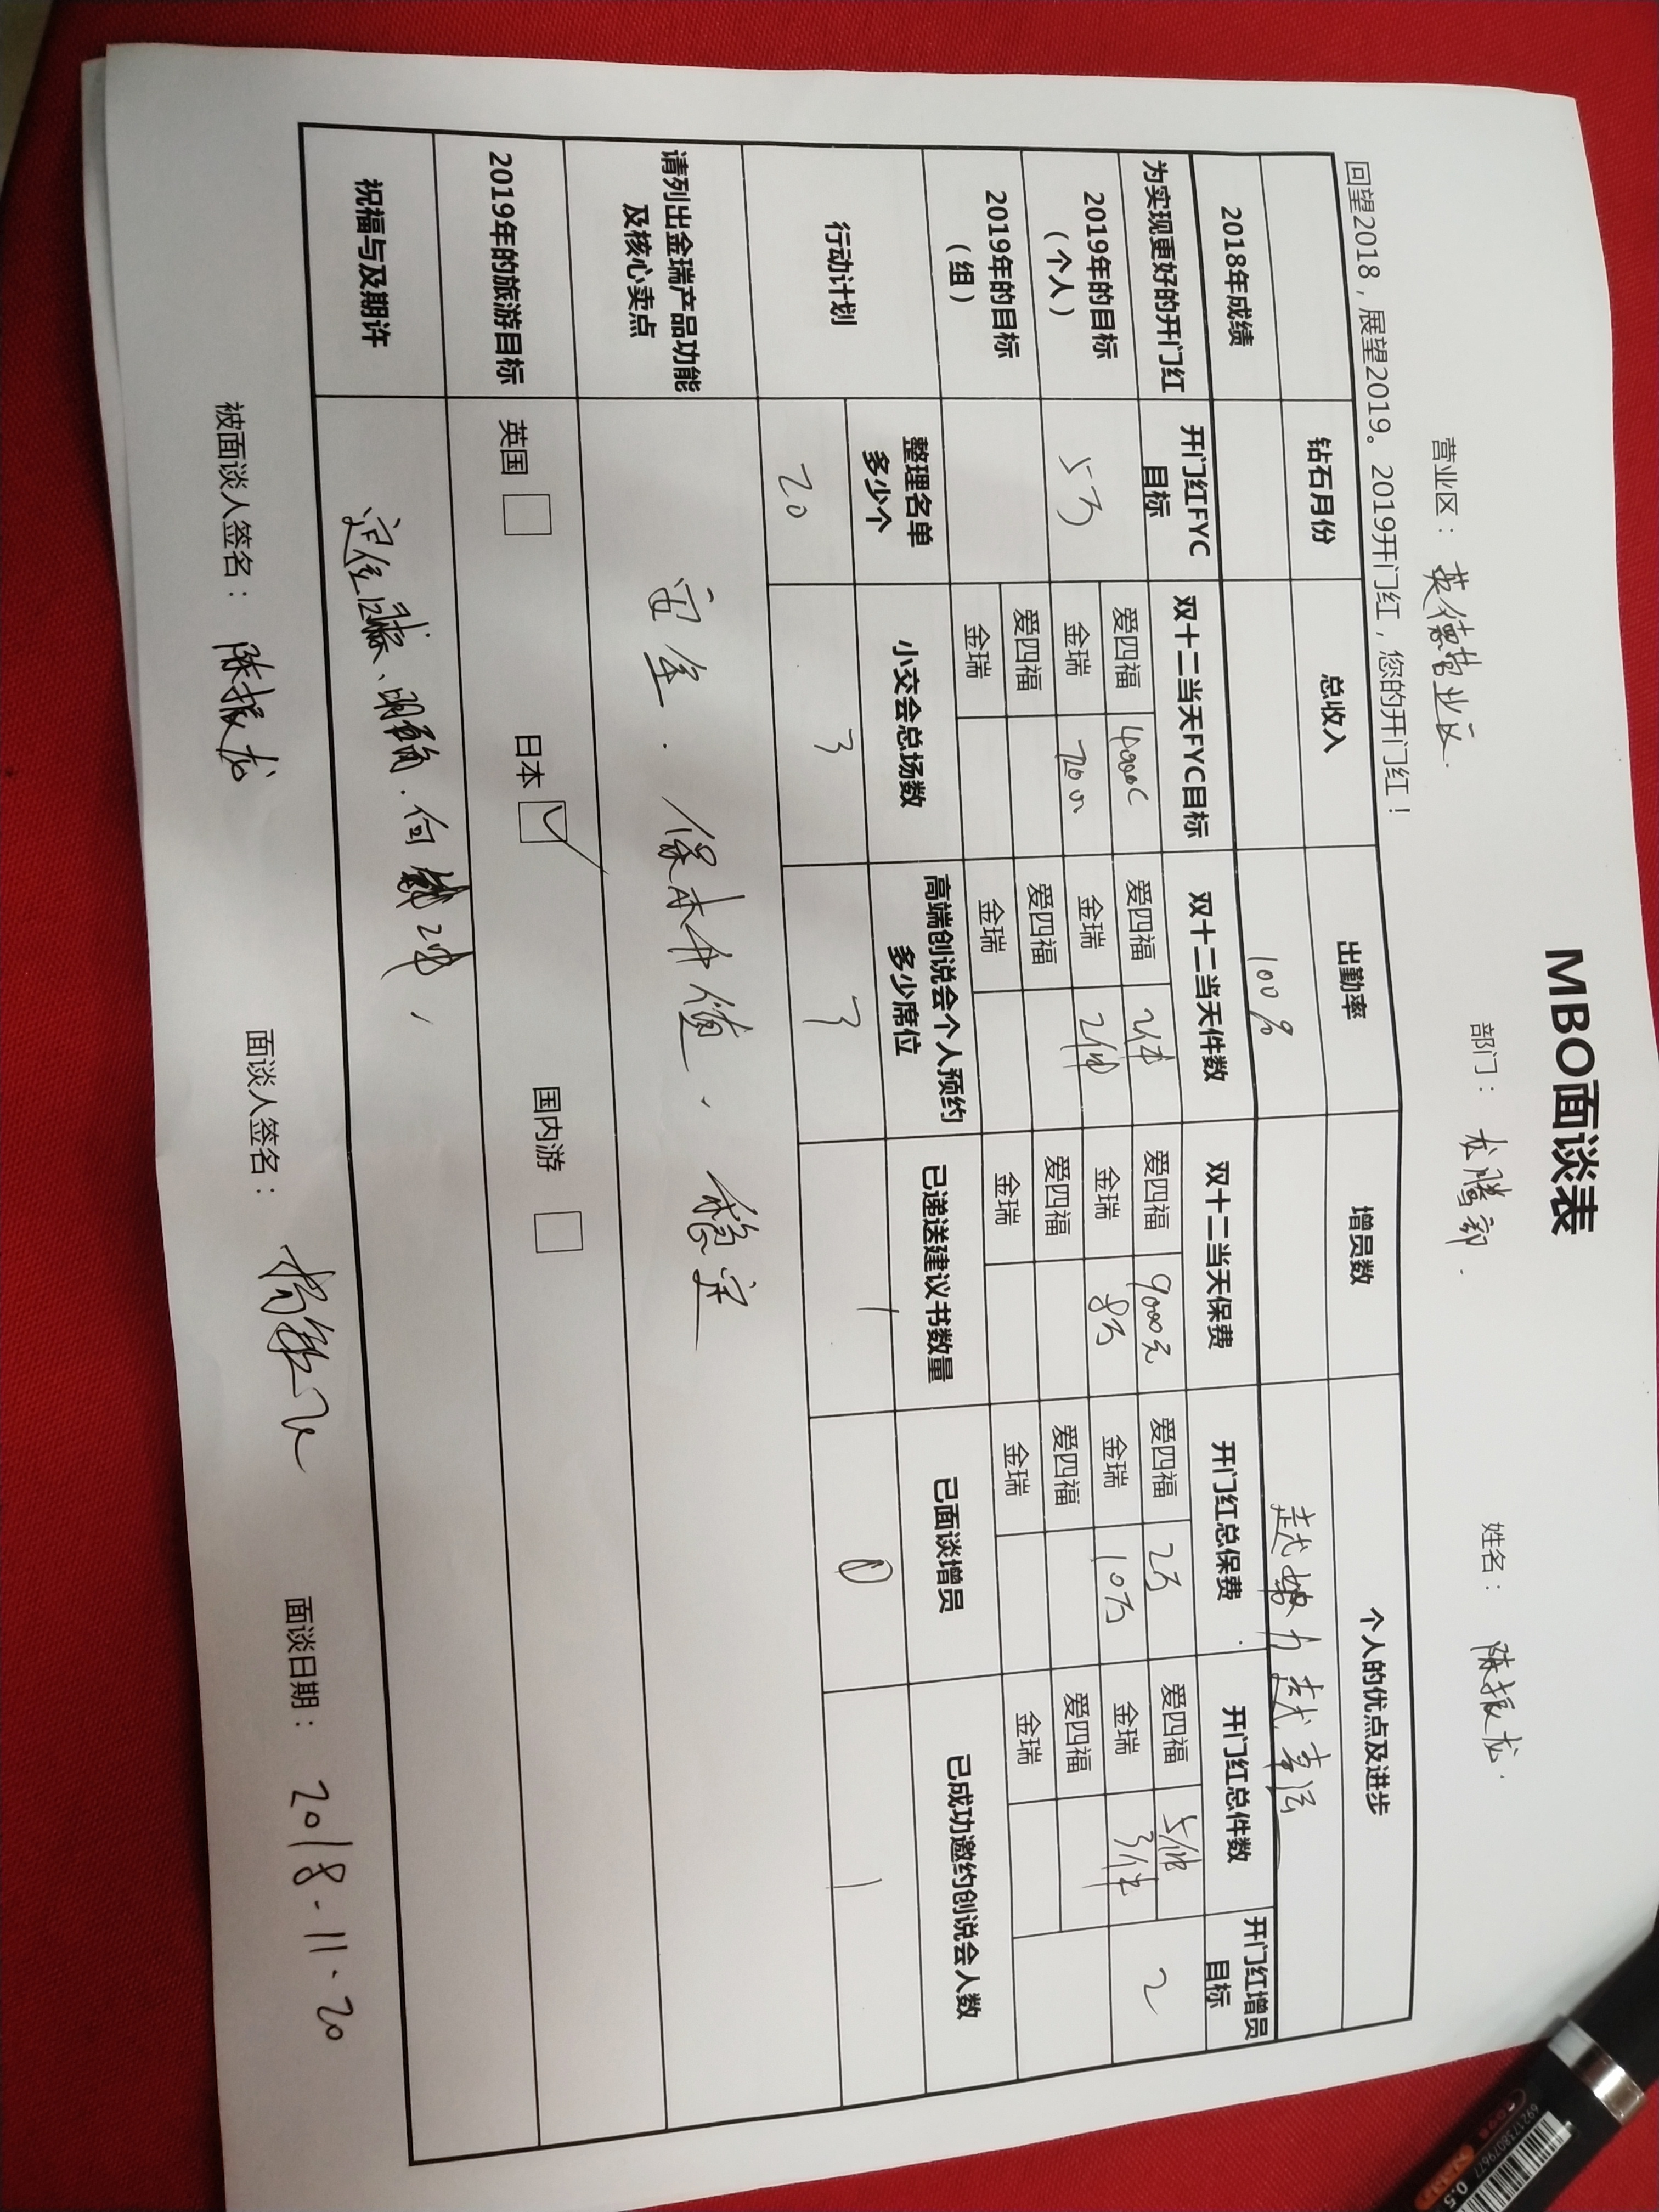 MBO面谈表
营业区： 英德营业区. 部门： 本腾部. 姓名： 陈振龙.
回望2018，展望2019。2019开门红，您的开门红！
钻石月份 总收入 出勤率 增员数 个人的优点及进步
2018年成绩 100%
为实现更好的开门红 开门红FYC目标 双十二当天FYC目标 双十二当天件数 双十二当天保费 开门红总保费 开门红总件数 开门红增员目标
2019年的目标（个人） 5万 爱四福 爱四福 2件 爱四福 9000元 爱四福 2万 爱四福 5件 2
金瑞 金瑞 2件 金瑞 8万 金瑞 10万 金瑞 3件
2019年的目标（组） 爱四福 爱四福 爱四福 爱四福 爱四福
金瑞 金瑞 金瑞 金瑞 金瑞
行动计划 整理名单多少个 小交会总场数 高端创说会个人预约多少席位 已递送建议书数量 已面谈增员 已成功邀约创说会人数
20 3 3 1 0 1
请列出金瑞产品功能及核心卖点 安全. 保本升值. 稳定
2019年的旅游目标 英国 □ 日本 ☑ 国内游 □
祝福与及期许
被面谈人签名： 陈振龙 面谈人签名： 面谈日期： 2018.11.20
6921738079677
0.5